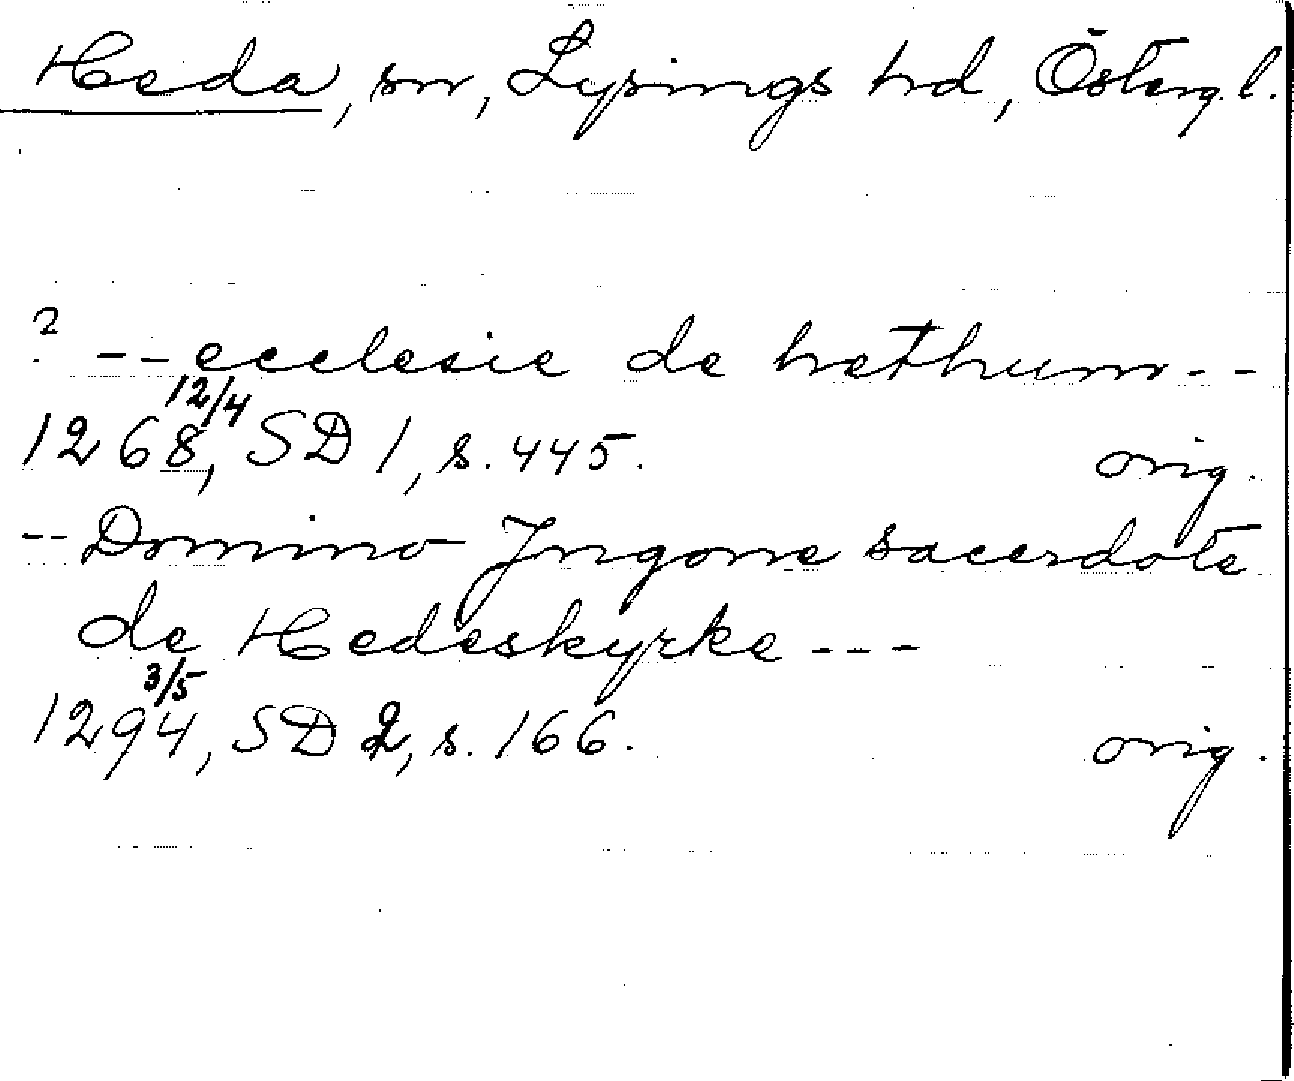 Heda, sn, Lysings hd, Österg. l.
? -- ecclesie de hethum --
12/4
1268, SD 1, s. 445. orig.
-- Domino Jngone sacerdote
de Hedeskyrke ---
3/5
1294, SD 2, s. 166. orig.